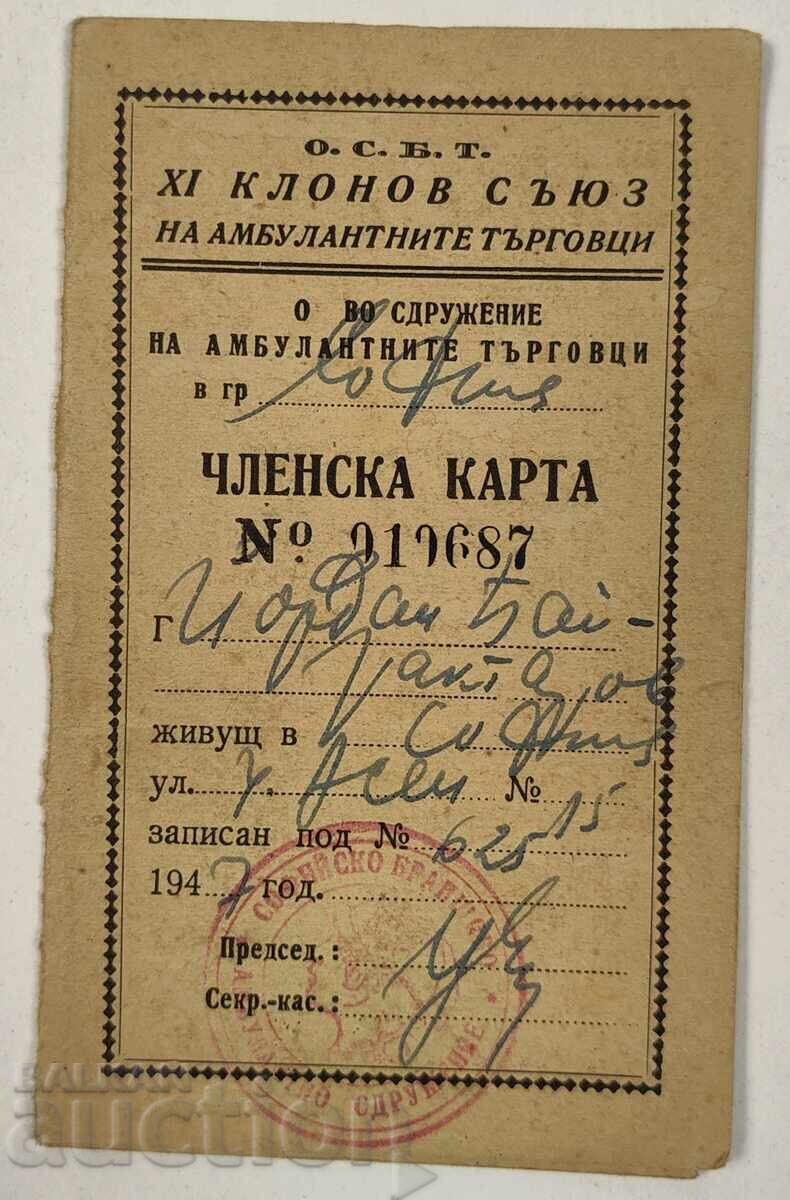 О. С. Б. Т.
XI КЛОНОВ СЪЮЗ
НА АМБУЛАНТНИТЕ ТЪРГОВЦИ
О ВО СДРУЖЕНИЕ
НА АМБУЛАНТНИТЕ ТЪРГОВЦИ
в гр София
ЧЛЕНСКА КАРТА
№ 010687
Г Йордан Бай-
рактаров
живущ в София
ул. Асен № 15
записан под № 625
1947 год.
Председ.:
Секр.-кас.:
СОФИЙСКО БРАНШОВО
СДРУЖЕНИЕ
BALKAN
auction